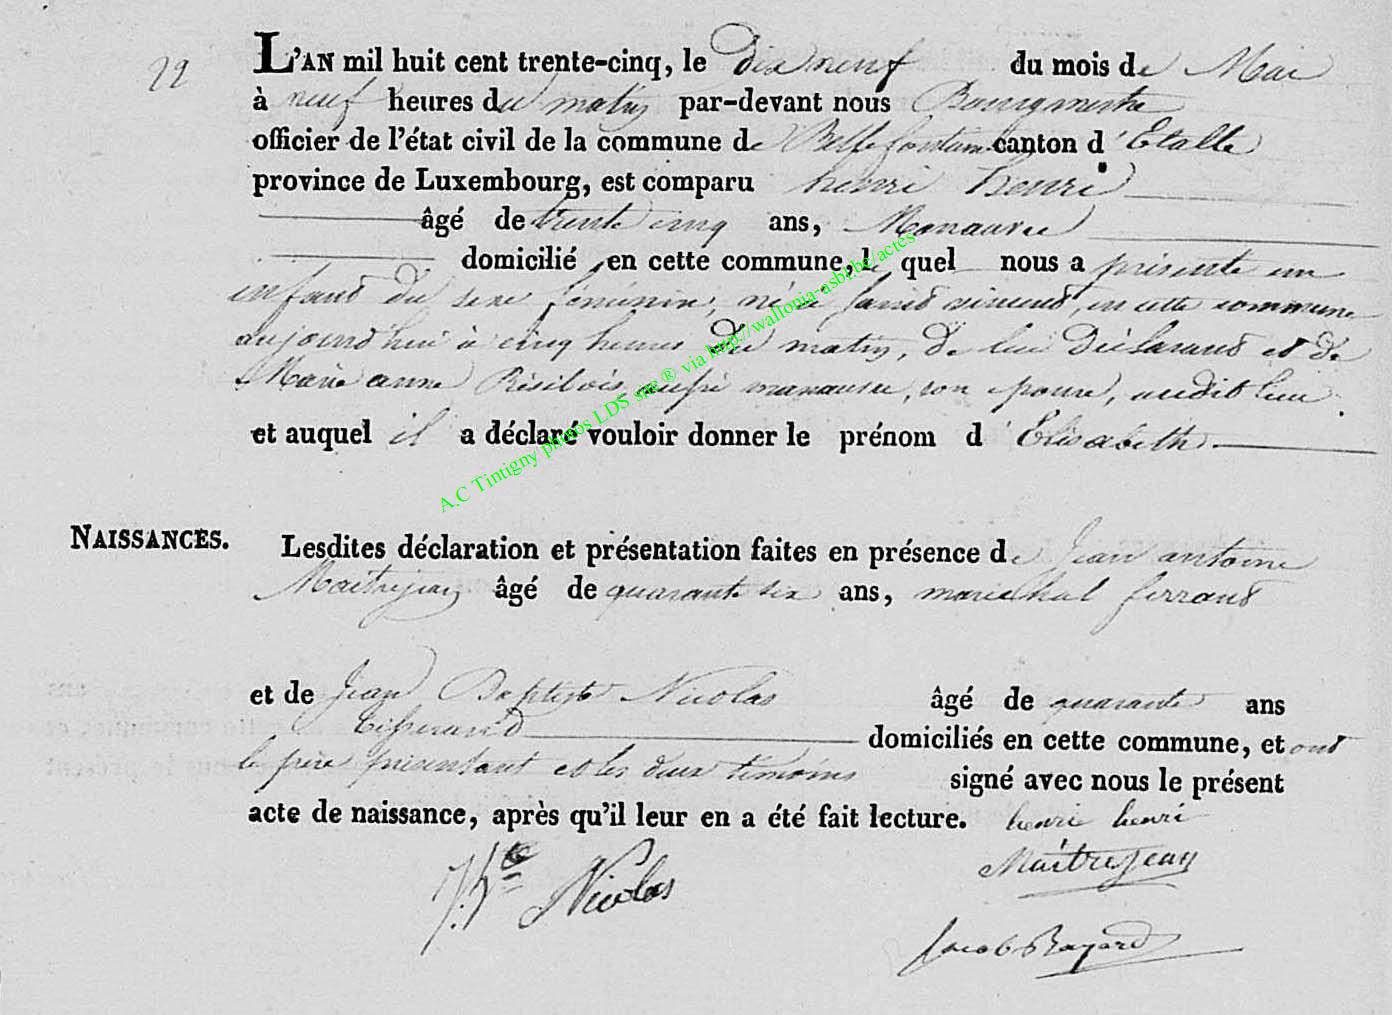 22
L'AN mil huit cent trente-cinq, le dix neuf du mois de Mai
à neuf heures du matin par-devant nous Bourgmestre
officier de l'état civil de la commune de Bellefontaine canton d'Etalle
province de Luxembourg, est comparu henri henri
âgé de trente cinq ans, Manœuvre
domicilié en cette commune, le quel nous a présenté un
enfant du sexe féminin, né à vincent, en cette commune
aujourd'hui à cinq heures du matin, de lui Déclarant et de
Marie anne aussi manœuvre, son épouse, audit lieu
et auquel il a déclaré vouloir donner le prénom d'Elisabeth
NAISSANCES.
Lesdites déclaration et présentation faites en présence de Jean antoine
Maitrejean âgé de quarante six ans, maréchal ferrant
et de Jean Baptiste Nicolas âgé de quarante ans
Tisserand domiciliés en cette commune, et ont
le père présentant et les deux témoins signé avec nous le présent
acte de naissance, après qu'il leur en a été fait lecture. henri henri
Maitrejean
J.Bte Nicolas
Jacob Rayard
A.C Tintigny photos LDS site ® via http://wallonia-asbl.be/actes